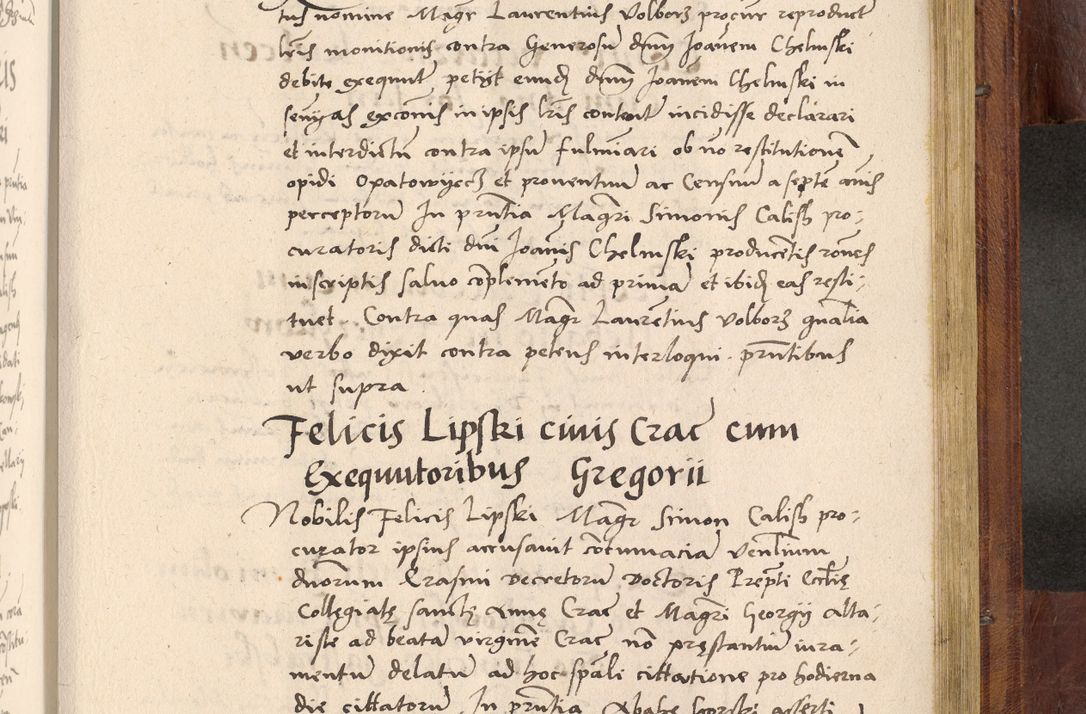 tus nomine Magr Laurentius Volborz procur reproduct
lris monitionis contra Generosu dnm Joanem Chelmski
debite exequut petijt eund dnm Joanem Chelmski in
senias exconis in ipsis lris content incidisse declarari
et interdictu contra ipsu fulminari ob no restitutione
opidi Opatowyecz et prouentuu ac Censuu a septe anis
perceptoru In prntia Magri Simonis Calish pro-
curatoris dicti dni Joanis Chelmski producetis rones
in scriptis saluo coplemento ad prima et ibid eas resti-
tuet. Contra quas Magr Lauretius Volborz gnalia
verbo dixit contra petens interloqui. prntibus
ut supra.
Felicis Lipski ciuis Crac cum
Exequutoribus Gregorii
Nobilis Felicis Lipski Magr Simon Calish pro-
curator ipsius accusauit cotumacia Venlium
dnorum Erasmi decretoru doctoris Prepti Ecclię
Collegiatę sanctę Annę Crac et Magri Georgij Alta-
riste ad beata virgine Crac no pręstantiu iura-
mentum delatu ad hoc spali cittatione pro hodierna
die cittatoru In prntia